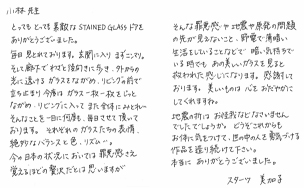 小林 先生
とっても とっても 素敵な STAINED GLASS ドアを
ありがとうございました。
毎日 見とれております。玄関に入り まずニッコリ。
そして廊下でわざと後向きに歩き、外からの
光に透けるガラスをながめ、リビングの前で
立ち止まり 今度は ガラス一枚一枚をじっと
ながめ、リビングに入って また全体にみとれ
そんなことを一日に何度も、毎日させて頂いて
おります。それぞれのガラスたちの表情、
絶妙なバランスと色、リズム…。
今の日本の状況においては 罪悪感さえ
覚えるほどの贅沢だとは思いますが
そんな罪悪感や地震や原発の問題
の先が見えないこと、節電で薄暗い
生活をしていることなどで 暗い気持ちで
いる時でも あの美しいガラスを見ると
救われた感じになります。感謝して
おります。美しいものは 心をおだやかに
してくれますね。
地震の折には お怪我などなさいません
でしたでしょうか。どうぞこれからも
お体に気をつけて、世の中の人を勇気づける
作品を造り続けて下さい。
本当に ありがとうございました。
スターツ 美加子